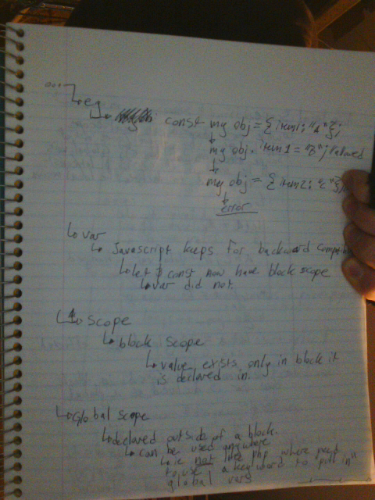 eg
const my obj = { item1: "A" };
my obj. item1 = "B"; allowed
my obj = { item2: "C" };
error
var
Javascript keeps for backward
let & const now have block scope
var did not.
scope
block scope
value exists only in block it
is declared in.
Global scope
declared outside of a block.
can be used anywhere
ie not like php where
to use a keyword to pull in
global vars